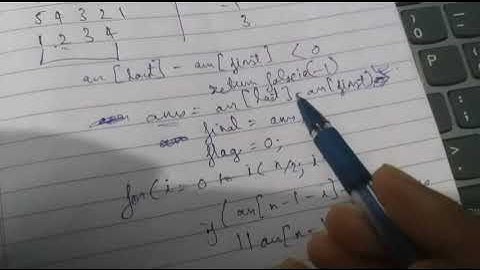 5 4 3 2 1
1 2 3 4
-1
3
arr[last] - arr[first] < 0
return false(-1)
ans = arr[last] - arr[first]
final = ans
flag = 0;
for(i=0 to i< n/2; i
if (arr[n-1-i]
|| arr[n-1